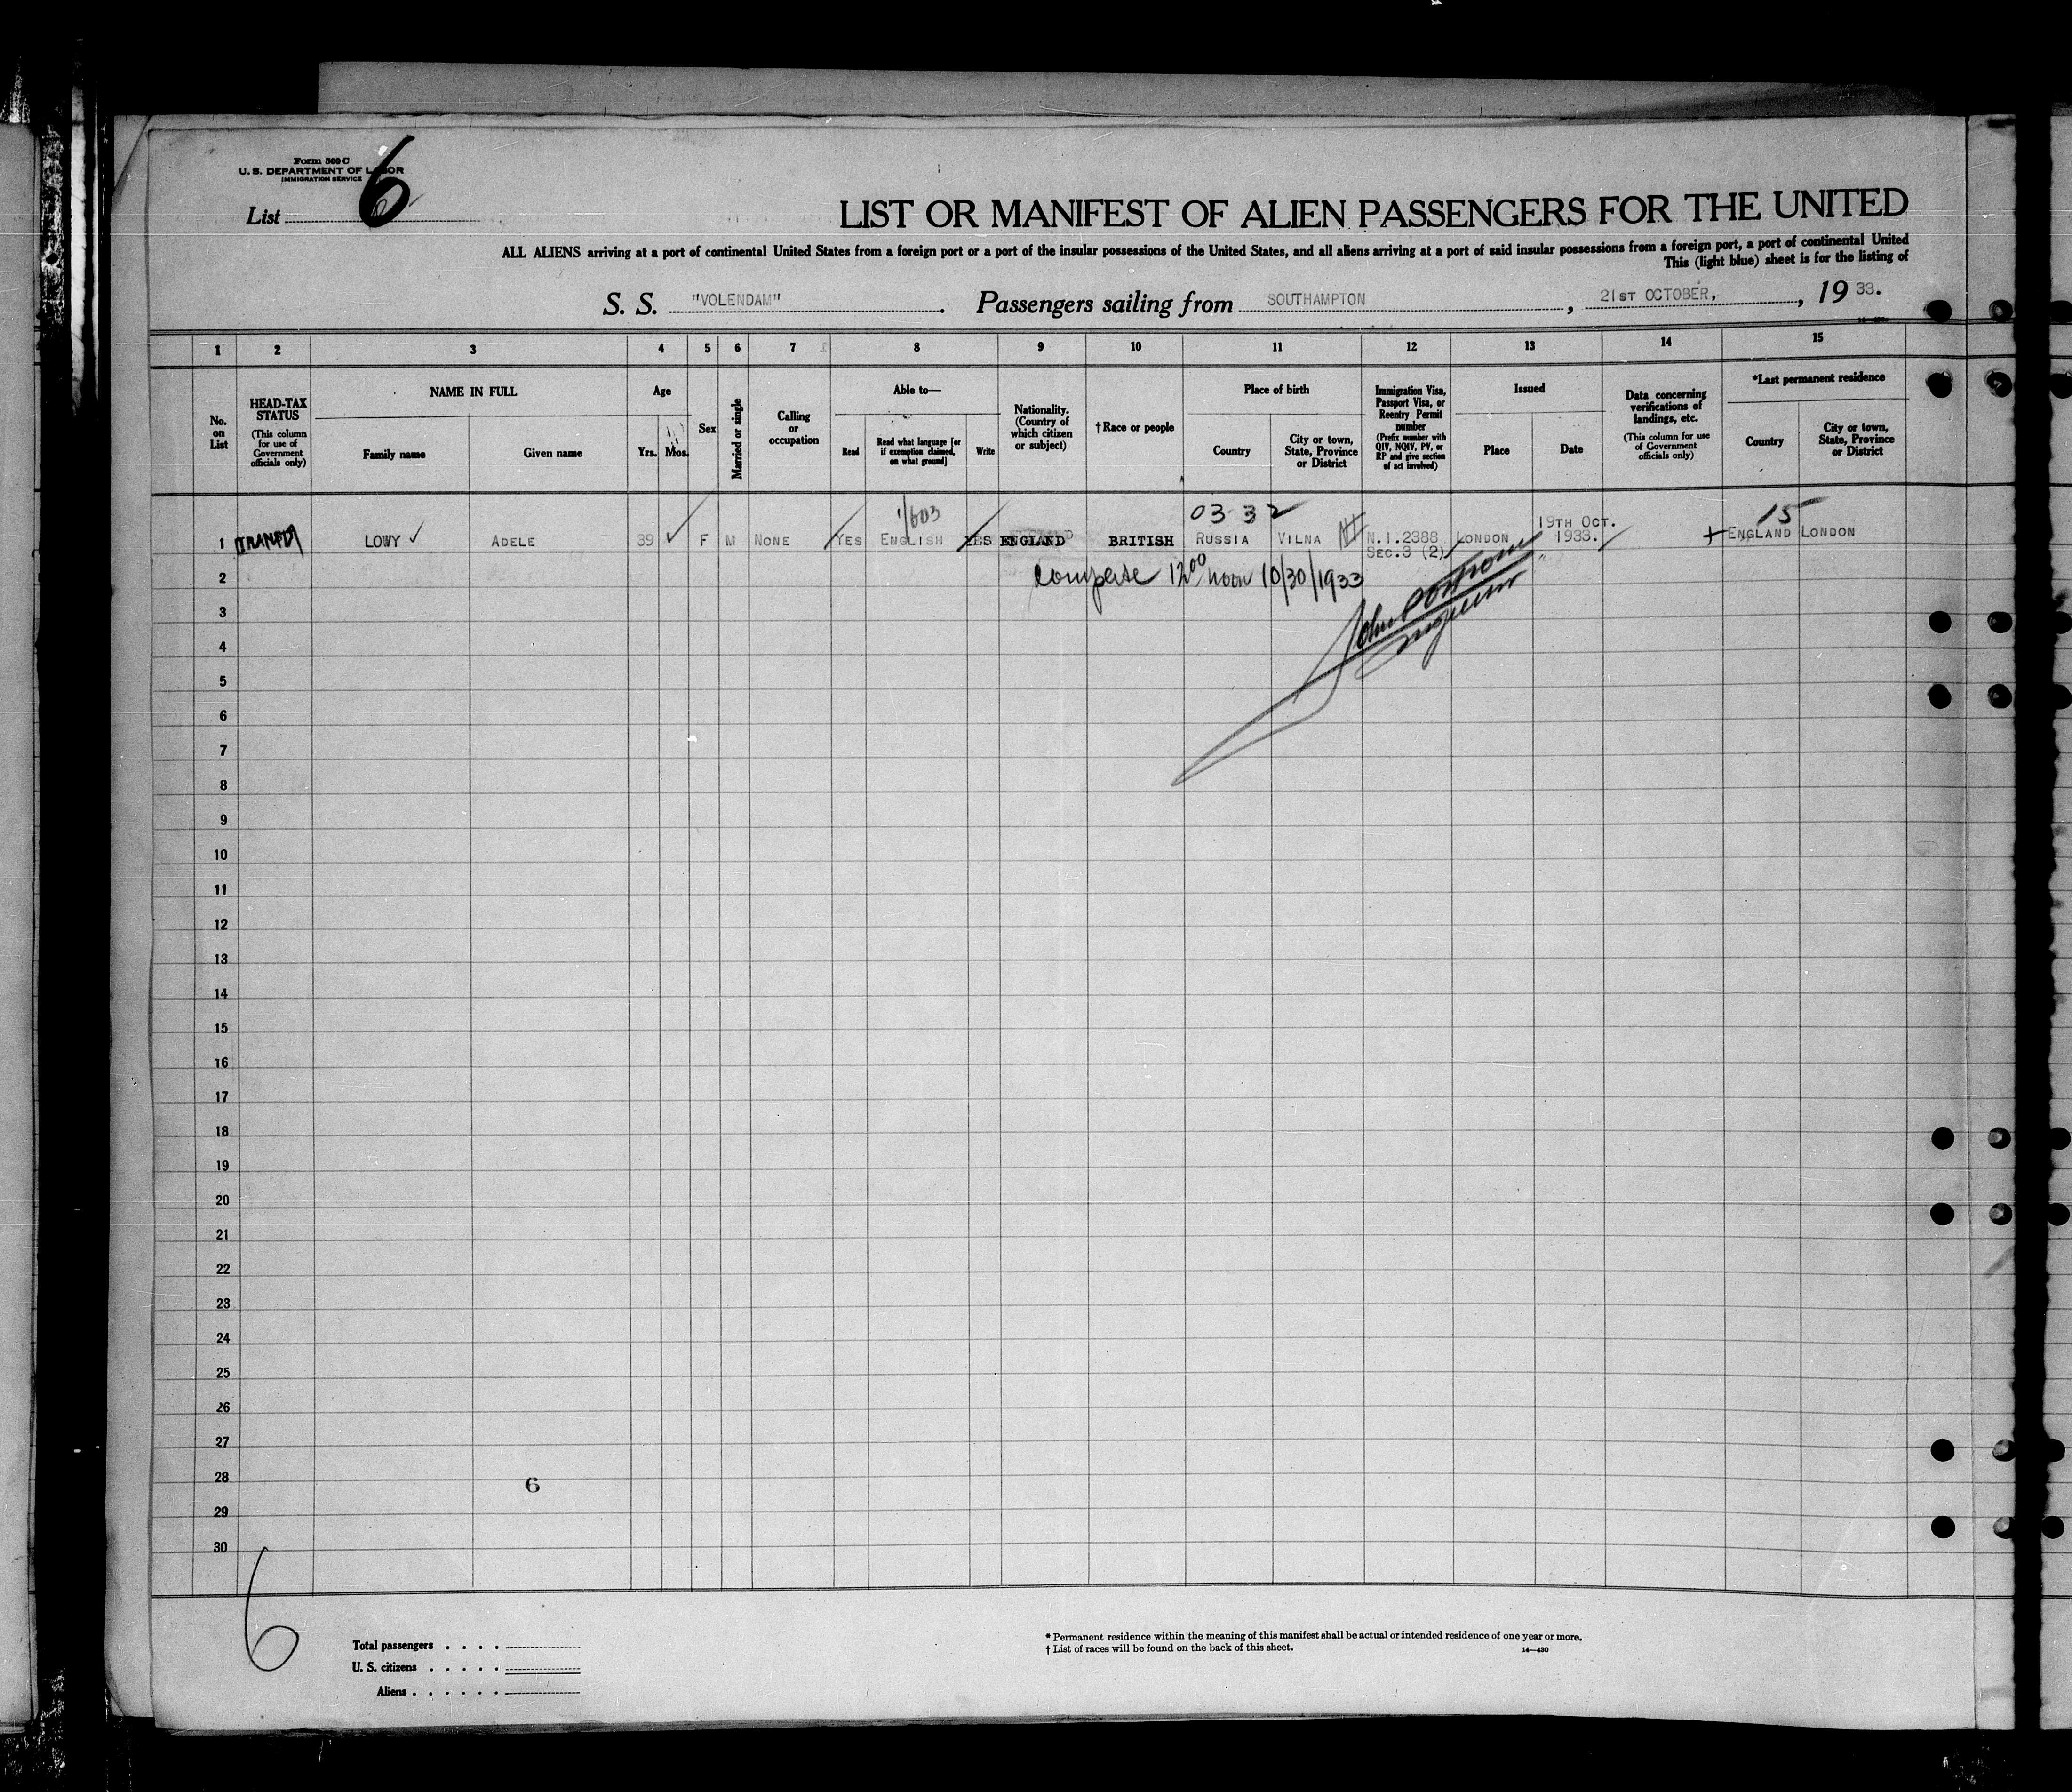 Form 500 C
U. S. DEPARTMENT OF LABOR
IMMIGRATION SERVICE
List 6
LIST OR MANIFEST OF ALIEN PASSENGERS FOR THE UNITED
ALL ALIENS arriving at a port of continental United States from a foreign port or a port of the insular possessions of the United States, and all aliens arriving at a port of said insular possessions from a foreign port, a port of continental United
This (light blue) sheet is for the listing of
S. S. "VOLENDAM". Passengers sailing from SOUTHAMPTON, 21ST OCTOBER, , 19 33.
1 2 3 4 5 6 7 8 9 10 11 12 13 14 15
No. on List
HEAD-TAX STATUS
(This column for use of Government officials only)
NAME IN FULL
Family name Given name
Age
Yrs. Mos.
Sex
Married or single
Calling or occupation
Able to—
Read
Read what language [or if exemption claimed, on what ground]
Write
Nationality. (Country of which citizen or subject)
†Race or people
Place of birth
Country
City or town, State, Province or District
Immigration Visa, Passport Visa, or Reentry Permit number
(Prefix number with QIV, NQIV, PV, or RP and give section of act involved)
Issued
Place Date
Data concerning verifications of landings, etc.
(This column for use of Government officials only)
*Last permanent residence
Country
City or town, State, Province or District
1/603 03 32 15
1 LOWY ✓ ADELE 39 ✓ F M NONE YES ENGLISH YES ENGLAND BRITISH RUSSIA VILNA N.I.2388 SEC.3 (2) LONDON 19TH OCT. 1933. + ENGLAND LONDON
2 1200 noon 10/30/1933
3
4
5
6
7
8
9
10
11
12
13
14
15
16
17
18
19
20
21
22
23
24
25
26
27
28 6
29
30
6
Total passengers . . . .
U. S. citizens . . . . .
Aliens . . . . . .
* Permanent residence within the meaning of this manifest shall be actual or intended residence of one year or more.
† List of races will be found on the back of this sheet.
14—430